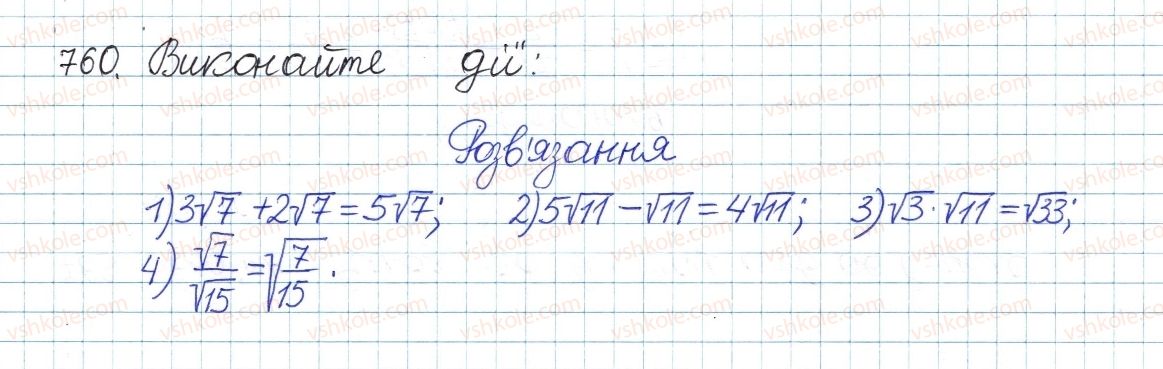 760. Виконайте дії:
Розв'язання
1) 3√7 + 2√7 = 5√7; 2) 5√11 − √11 = 4√11; 3) √3 · √11 = √33;
4) √7/√15 = √(7/15).